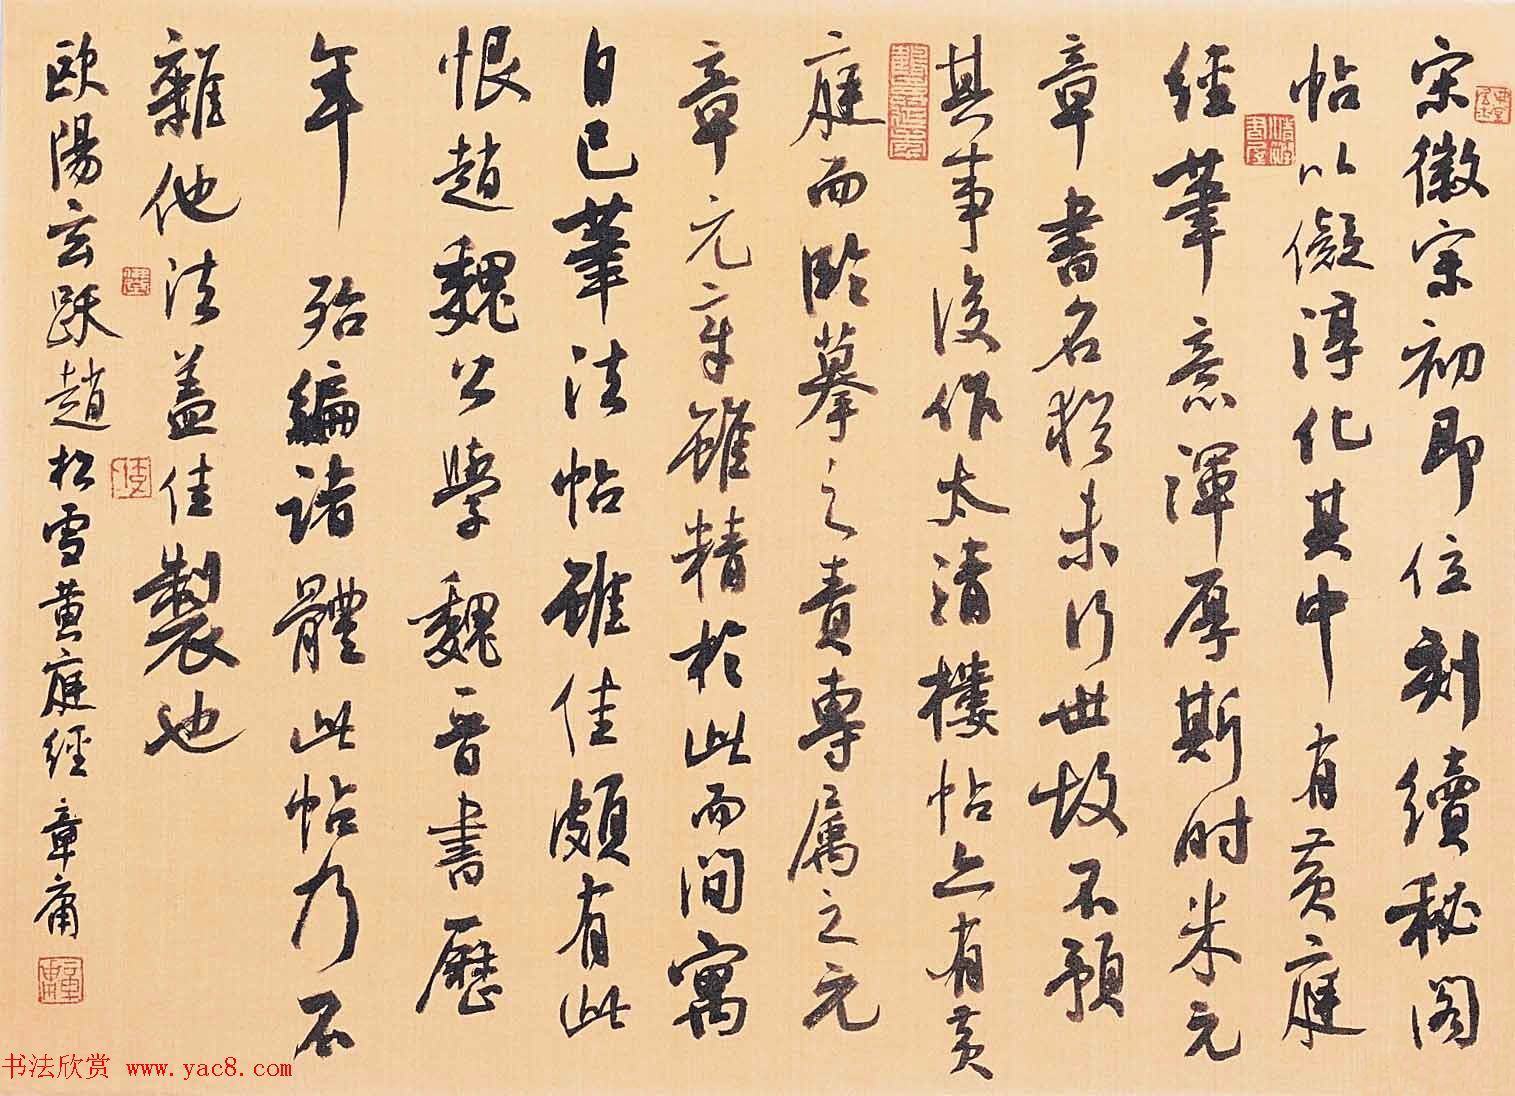 宋徽宗初即位刻續秘阁
帖以儗淳化其中有黄庭
經筆意渾厚斯时米元
章書名猶未行世故不預
其事後作太清樓帖亦有黄
庭而臨摹之責專属之元
章元章雖精於此而间寓
自己筆法帖雖佳頗有此
恨趙魏公學魏晋書歷
年殆編诸體此帖乃不
雜他法盖佳製也
欧陽玄跋趙松雪黄庭經 章庸
书法欣赏 www.yac8.com